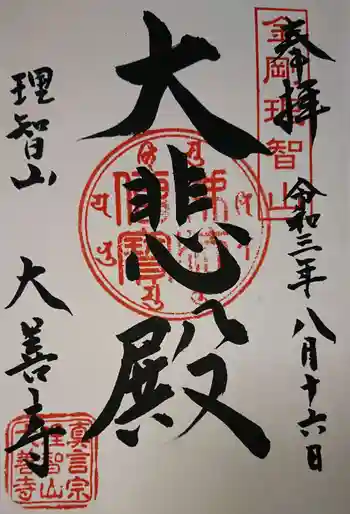 奉拝
令和三年八月十六日
大悲殿
理智山
大善寺
金剛理智山
真言宗
理智山
大善寺